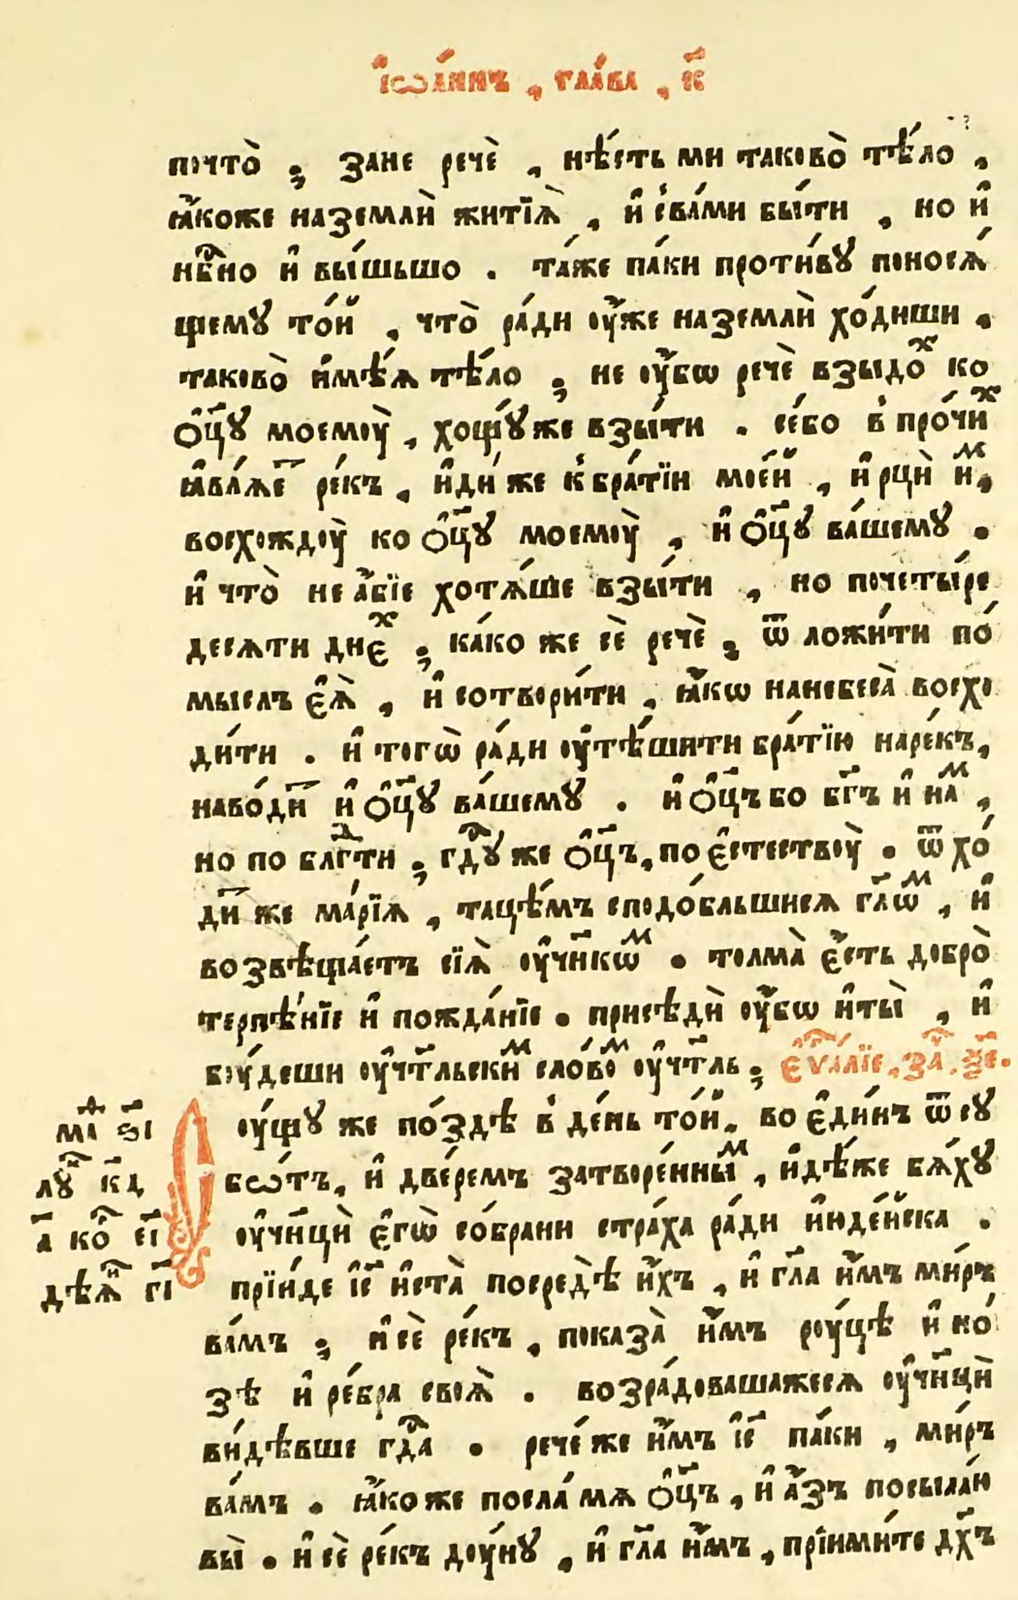 і҆ѡа́ннъ , глава̀ , к҃
почто̀ ; зане речѐ , нѣ́сть ми таково̀ тѣ́ло ,
ꙗ҆́коже наземлѝ житїѧ̀ , и҆ с̾ва́ми бы́ти , но и҆
нбⷭ҇но и҆ вы́шьшо . та́же па́ки проти́вꙋ поносѧ́
щемꙋ то́й , что̀ ра́ди оу҆́же наземлѝ хо́диши .
таково̀ и҆мѣ́ѧ тѣ́ло ; не оу҆́бѡ речѐ взыдоⷯ ко
ѻ҆ц҃ꙋ моемоꙋ̀ , хощꙋ́же взы́ти . се́бо в̾ про́чиⷯ
ꙗ҆влѧ́е҅ ре́къ , и҆ди́ же к̾ бра́тїи мое́й , и҆ рцѝ и҆ⷨ ,
восхождоꙋ̀ ко ѻ҆ц҃ꙋ моемоꙋ̀ , и҆ ѻ҆ц҃ꙋ ва́шемꙋ .
и҆ что̀ не а҆́бїе хотѧ́ше взы́ти , но почеты́ре
десѧти днеⷯ ; ка́ко же сѐ речѐ ; ѿ ложи́ти по́
мыслъ є҆ѧ̀ , и҆ сотвори́ти , ꙗ҆́кѡ нанебеса̀ восхо
ди́ти . и҆ тогѡ̀ ра́ди оу҆тѣ́шити бра́тїю наре́къ ,
наво́ди҅ и҆ ѻ҆ц҃ꙋ ва́шемꙋ . и҆ ѻ҆ц҃ъ бо бг҃ъ и҆ на́ⷨ ,
но по блгⷣти ; гдⷭ҇ꙋ же ѻ҆ц҃ъ , по є҆стествоꙋ̀ . ѿ хо́
ди҅ же марі́ѧ , тацѣ́мъ сподо́бльшисѧ гл҃ѡⷨ , и҆
возвѣща́етъ сїѧ̀ оу҆чн҃кѡⷨ . толма̀ є҆́сть добро̀
терпѣ́нїе и҆ пожда́нїе . присѣдѝ оу҆́бѡ и҆ты̀ , и҆
боꙋ́деши оу҆чт҃льскиⷨ сло́воⷨ оу҆чт҃ль ; є҆ѵⷢ҇а́лїе , за҄ , ѯ҃е .
оу҆́щꙋ же по́здѣ в̾ де́нь то́й , во є҆ди́нъ ѿ сꙋ
бѡ́тъ , и҆ две́ремъ затворе́нныⷨ , и҆дѣ́же бѧ́хꙋ
оу҆чн҃цѝ є҆гѡ̀ со́брани стра́ха ра́ди и҆юде́йска .
прїи́де і҆с҃ и҆ста̀ посредѣ̀ и҆́хъ , и҆ гл҃а и҆́мъ ми́ръ
ва́мъ ; и҆ сѐ ре́къ , показа̀ и҆́мъ роу́цѣ и҆ но́
зѣ и҆ ре́бра своѧ̀ . возра́довашажесѧ оу҆чн҃цѝ
ви́дѣвше гдⷭ҇а . рече́ же и҆́мъ і҆с҃ па́ки , ми́ръ
ва́мъ . ꙗ҆́коже посла́ мѧ ѻ҆ц҃ъ , и҆ а҆́зъ посыла́ю
вы̀ . и҆ сѐ ре́къ доу́нꙋ , и҆ гл҃а и҆́мъ , прїими́те дх҃ъ
маⷴ ѕ҃і
лꙋⷦ҇ к҃д
а҃ коⷬ҇ е҃і
дѣѧ҆ⷩ҇ г҃і